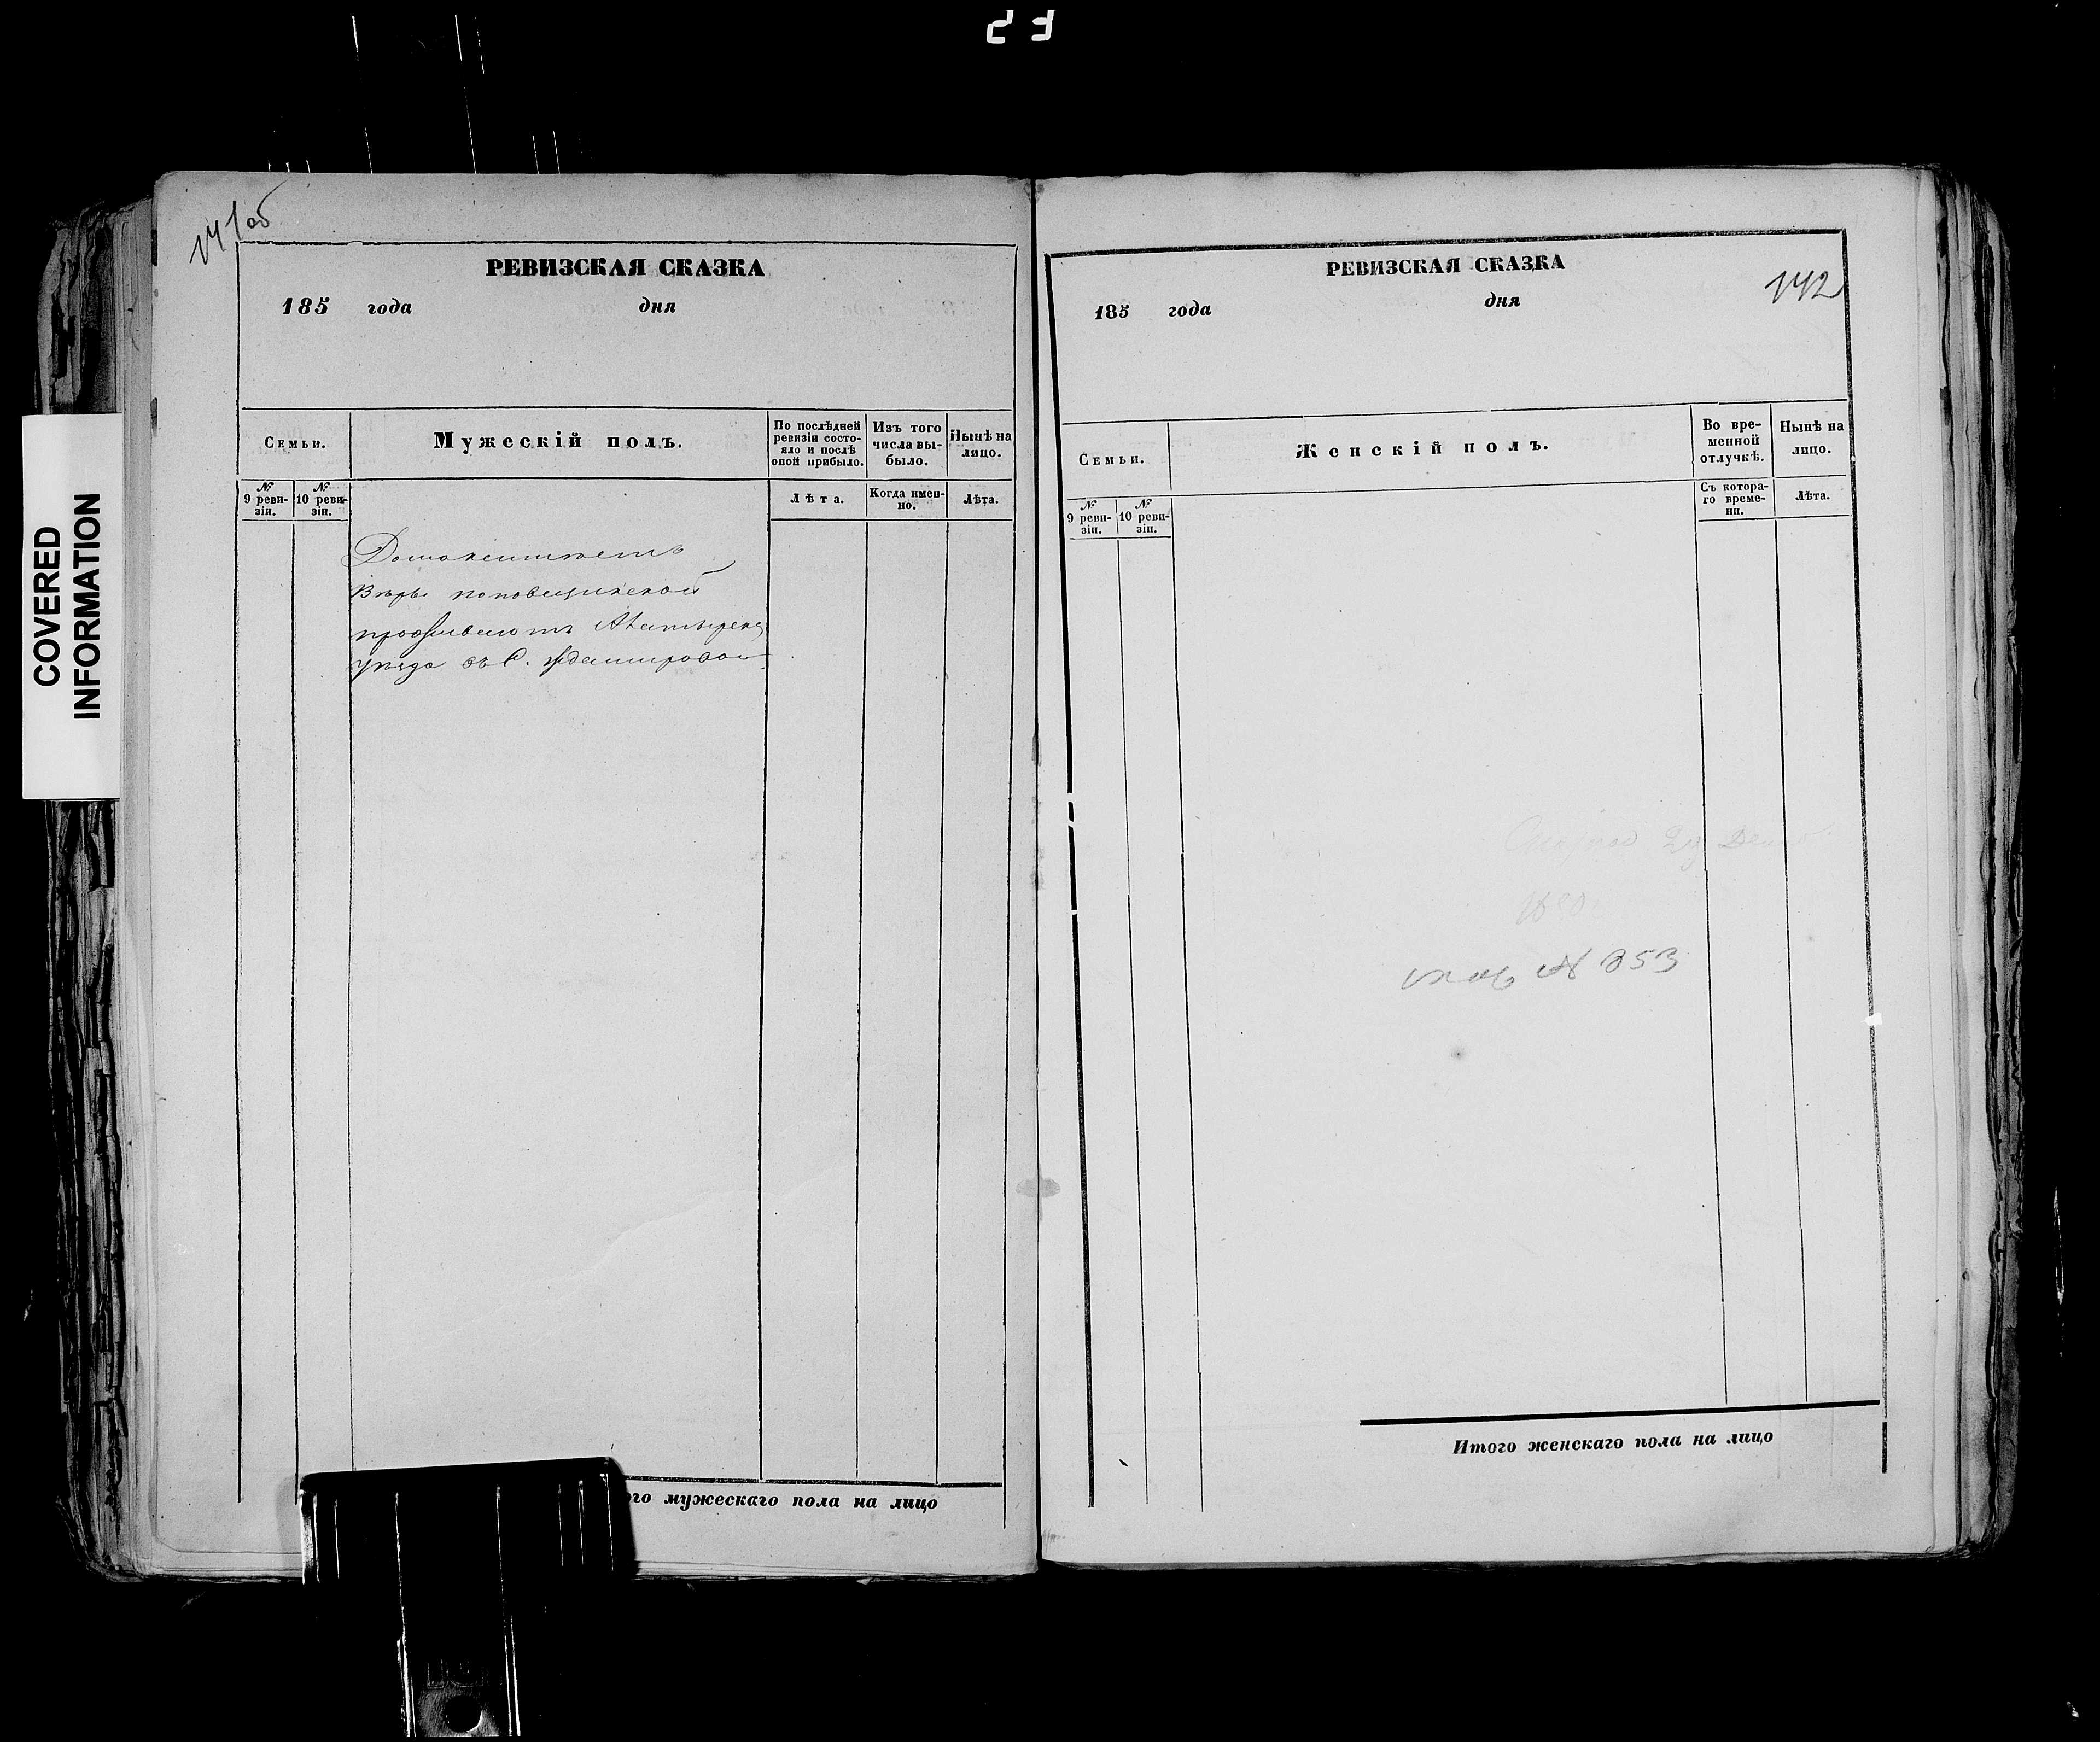 23
COVERED
INFORMATION
141об
РЕВИЗСКАЯ СКАЗКА
185 года дня
Семьи.
Мужескій полъ.
По послѣдней
ревизіи состо-
яло и послѣ
оной прибыло.
Изъ того
числа вы-
было.
Нынѣ на
лицо.
№
9 реви-
зіи.
№
10 реви-
зіи.
Лѣта.
Когда имен-
но.
Лѣта.
Вѣры поповщинской
проживаютъ
уѣзда въ С.
ого мужескаго пола на лицо
142
РЕВИЗСКАЯ СКАЗКА
185 года дня
Семьи.
Женскій полъ.
Во вре-
менной
отлучкѣ.
Нынѣ на
лицо.
№
9 реви-
зіи.
№
10 реви-
зіи.
Съ котора-
го време-
ни.
Лѣта.
№ 353
Итого женскаго пола на лицо